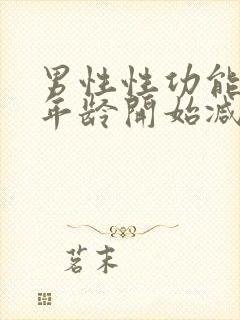 男性性功能
年龄開始减
茗末